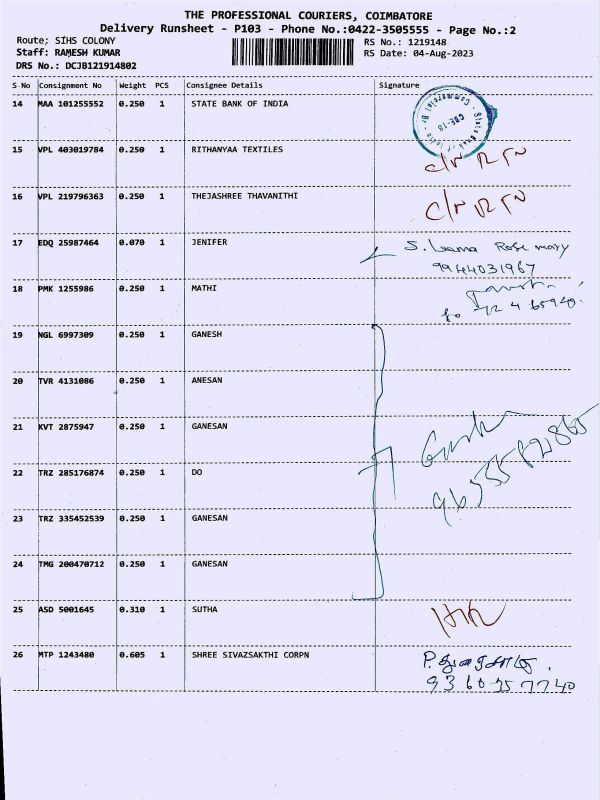 THE PROFESSIONAL COURIERS, COIMBATORE
Delivery Runsheet - P103 - Phone No.:0422-3505555 - Page No.:2
Route; SIHS COLONY
RS No.: 1219148
Staff: RAMESH KUMAR
RS Date: 04-Aug-2023
DRS No.: DCJB121914802
S No Consignment No Weight PCS Consignee Details Signature
14 MAA 101255552 0.250 1 STATE BANK OF INDIA
15 VPL 403019784 0.250 1 RITHANYAA TEXTILES
16 VPL 219796363 0.250 1 THEJASHREE THAVANITHI
17 EDQ 25987464 0.070 1 JENIFER S. Leema Rose mary
9944031967
18 PMK 1255986 0.250 1 MATHI
19 NGL 6997309 0.250 1 GANESH
20 TVR 4131086 0.250 1 ANESAN
21 KVT 2875947 0.250 1 GANESAN
22 TRZ 285176874 0.250 1 DO
23 TRZ 335452539 0.250 1 GANESAN
24 TMG 200470712 0.250 1 GANESAN
25 ASD 5001645 0.310 1 SUTHA
26 MTP 1243480 0.605 1 SHREE SIVAZSAKTHI CORPN